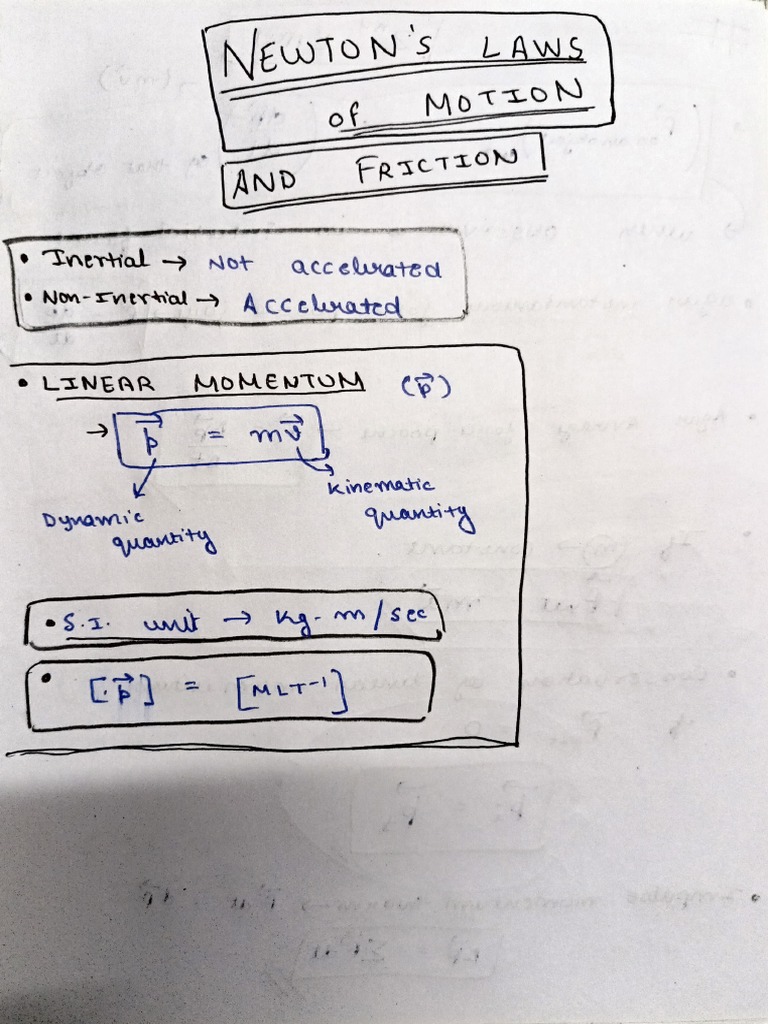 NEWTON'S LAWS
of MOTION
AND FRICTION
• Inertial → Not accelerated
• Non-Inertial → Accelerated
• LINEAR MOMENTUM (p⃗)
→ p⃗ = mv⃗
Kinematic
quantity
Dynamic
quantity
• S.I. unit → kg-m/sec
• [p⃗] = [MLT⁻¹]